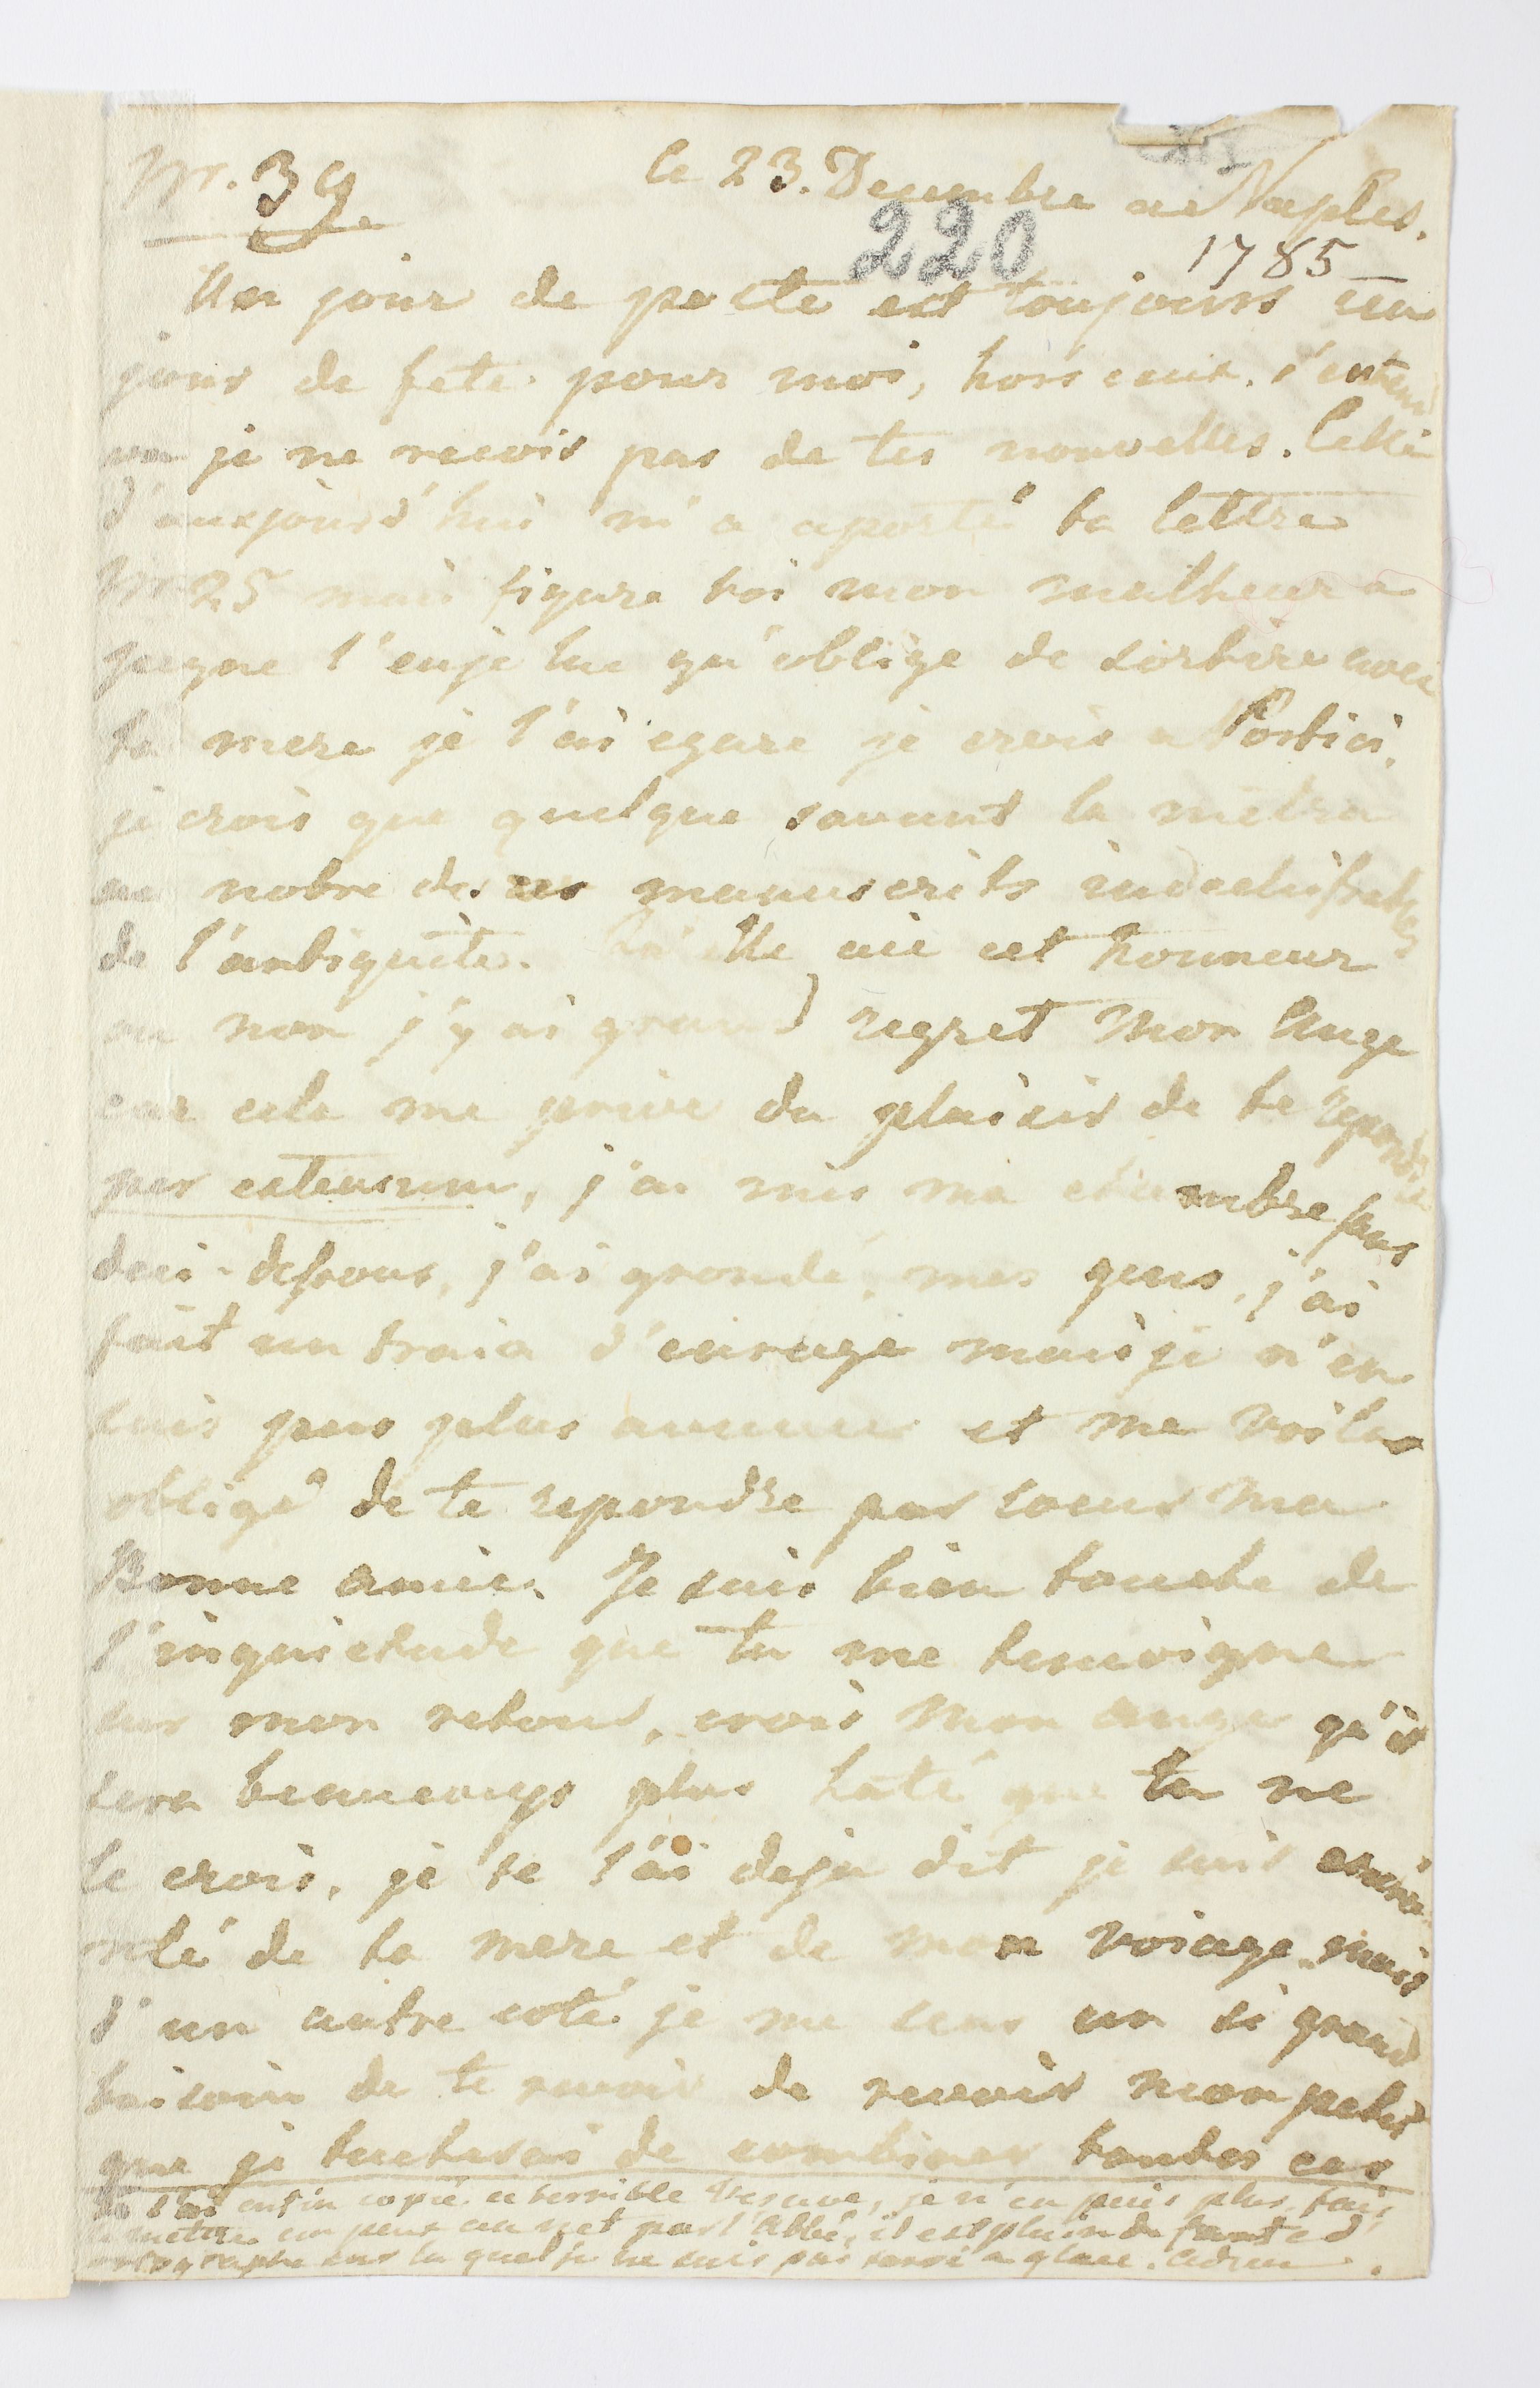 Nr. 39 le 23. Decembre a Naples.
220 1785
Un jour de poste est toujours un
jour de fete pour moi, hors ceux s'entend
ou je ne recois pas de tes nouvelles. Celle
d'aujourd'hui m'a aporté ta lettre
Nr 25 mais figure toi mon malheur a
peyne l'euje lue qu'oblige de sortire avec
ta mere je l'ai egare je crois a Portici.
je crois que quelque savant la metra
au nobre des ces manuscrits indechifrables
de l'antiquite. Qu'elle aie cet honneur
ou non j'y ai grand regret Mon Ange
car cela me prive du plaisir de te repondre
per extensum, j'ai mis ma chambre sens
deci-dessous, j'ai grondé mes gens, j'ai
fait un train d'enrage mais je n'en
suis pas plus avance et me voila
obligé de te repondre par coeur Ma
Bonne amie. Je suis bien touche de
l'inquietude que tu me temoigne
sur mon retour, crois Mon ange qu'il
sera beaucoup plus haté que tu ne
le crois, je te l'ai deja dit je suis
de ta mere et de mon voiage mais
d'un autre coté je me sens un si grand
besoin de te revoir de revoir mon petit
que je tacherai de combiner toutes ces
Je t'ai enfin copié ce terrible Vesuve, je n'en puis plus, fais
le metre un peux au net par l'Abbé, il est plein de faute d'
ortographe sur la quel je ne suis pas ferré a glace. Adieu.